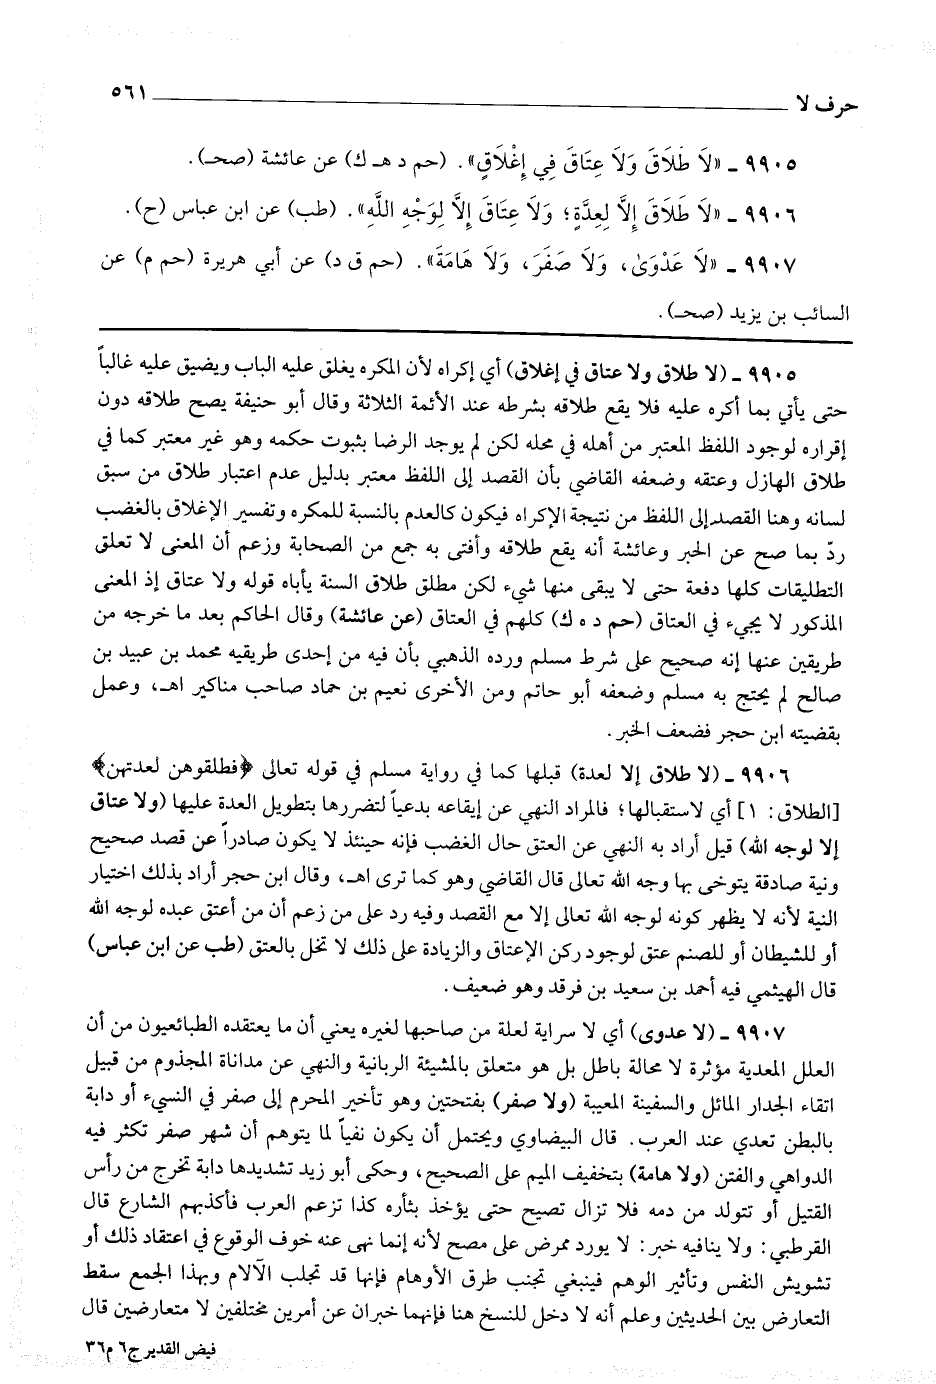 حرف لا ٥٦١
٩٩٠٥ ـ «لَا طَلَاقَ وَلَا عِتَاقَ فِي إِغْلَاقٍ». (حم د هـ ك) عن عائشة (صحـ).
٩٩٠٦ ـ «لَا طَلَاقَ إِلَّا لِعِدَّةٍ؛ وَلَا عِتَاقَ إِلَّا لِوَجْهِ اللَّهِ». (طب) عن ابن عباس (ح).
٩٩٠٧ ـ «لَا عَدْوَىٰ، وَلَا صَفَرَ، وَلَا هَامَةَ». (حم ق د) عن أبي هريرة (حم م) عن
السائب بن يزيد (صحـ).
٩٩٠٥ ـ (لا طلاق ولا عتاق في إغلاق) أي إكراه لأن المكره يغلق عليه الباب ويضيق عليه غالباً
حتى يأتي بما أكره عليه فلا يقع طلاقه بشرطه عند الأئمة الثلاثة وقال أبو حنيفة يصح طلاقه دون
إقراره لوجود اللفظ المعتبر من أهله في محله لكن لم يوجد الرضا بثبوت حكمه وهو غير معتبر كما في
طلاق الهازل وعتقه وضعفه القاضي بأن القصد إلى اللفظ معتبر بدليل عدم اعتبار طلاق من سبق
لسانه وهنا القصد إلى اللفظ من نتيجة الإكراه فيكون كالعدم بالنسبة للمكره وتفسير الإغلاق بالغضب
ردّ بما صح عن الحبر وعائشة أنه يقع طلاقه وأفتى به جمع من الصحابة وزعم أن المعنى لا تعلق
التطليقات كلها دفعة حتى لا يبقى منها شيء لكن مطلق طلاق السنة يأباه قوله ولا عتاق إذ المعنى
المذكور لا يجيء في العتاق (حم د ه ك) كلهم في العتاق (عن عائشة) وقال الحاكم بعد ما خرجه من
طريقين عنها إنه صحيح على شرط مسلم ورده الذهبي بأن فيه من إحدى طريقيه محمد بن عبيد بن
صالح لم يحتج به مسلم وضعفه أبو حاتم ومن الأخرى نعيم بن حماد صاحب مناكير اهـ، وعمل
بقضيته ابن حجر فضعف الخبر.
٩٩٠٦ ـ (لا طلاق إلا لعدة) قبلها كما في رواية مسلم في قوله تعالى ﴿فطلقوهن لعدتهن﴾
[الطلاق: ١] أي لاستقبالها؛ فالمراد النهي عن إيقاعه بدعياً لتضررها بتطويل العدة عليها (ولا عتاق
إلا لوجه الله) قيل أراد به النهي عن العتق حال الغضب فإنه حينئذ لا يكون صادراً عن قصد صحيح
ونية صادقة يتوخى بها وجه الله تعالى قال القاضي وهو كما ترى اهـ، وقال ابن حجر أراد بذلك اختيار
النية لأنه لا يظهر كونه لوجه الله تعالى إلا مع القصد وفيه رد على من زعم أن من أعتق عبده لوجه الله
أو للشيطان أو للصنم عتق لوجود ركن الإعتاق والزيادة على ذلك لا تخل بالعتق (طب عن ابن عباس)
قال الهيثمي فيه أحمد بن سعيد بن فرقد وهو ضعيف.
٩٩٠٧ ـ (لا عدوى) أي لا سراية لعلة من صاحبها لغيره يعني أن ما يعتقده الطبائعيون من أن
العلل المعدية مؤثرة لا محالة باطل بل هو متعلق بالمشيئة الربانية والنهي عن مداناة المجذوم من قبيل
اتقاء الجدار المائل والسفينة المعيبة (ولا صفر) بفتحتين وهو تأخير المحرم إلى صفر في النسيء أو دابة
بالبطن تعدي عند العرب. قال البيضاوي ويحتمل أن يكون نفياً لما يتوهم أن شهر صفر تكثر فيه
الدواهي والفتن (ولا هامة) بتخفيف الميم على الصحيح، وحكى أبو زيد تشديدها دابة تخرج من رأس
القتيل أو تتولد من دمه فلا تزال تصيح حتى يؤخذ بثأره كذا تزعم العرب فأكذبهم الشارع قال
القرطبي: ولا ينافيه خبر: لا يورد ممرض على مصح لأنه إنما نهى عنه خوف الوقوع في اعتقاد ذلك أو
تشويش النفس وتأثير الوهم فينبغي تجنب طرق الأوهام فإنها قد تجلب الآلام وبهذا الجمع سقط
التعارض بين الحديثين وعلم أنه لا دخل للنسخ هنا فإنهما خبران عن أمرين مختلفين لا متعارضين قال
فيض القدير ج٦ م٣٦